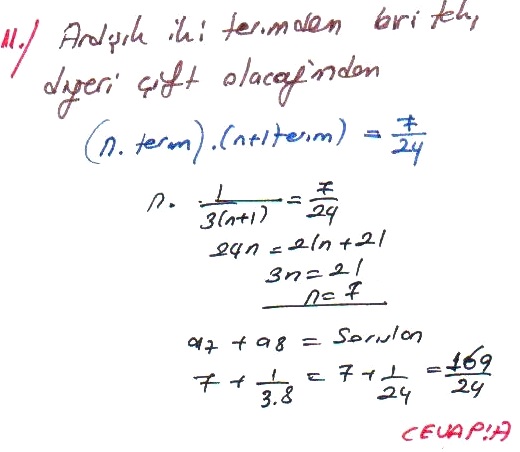 11./ Ardışık iki terimden biri tek,
diğeri çift olacağından
(n. terim).(n+1 terim) = 7/24
n. 1/3(n+1) = 7/24
24n = 21n + 21
3n = 21
n = 7
a7 + a8 = Sorulan
7 + 1/3.8 = 7 + 1/24 = 169/24
CEVAP:A